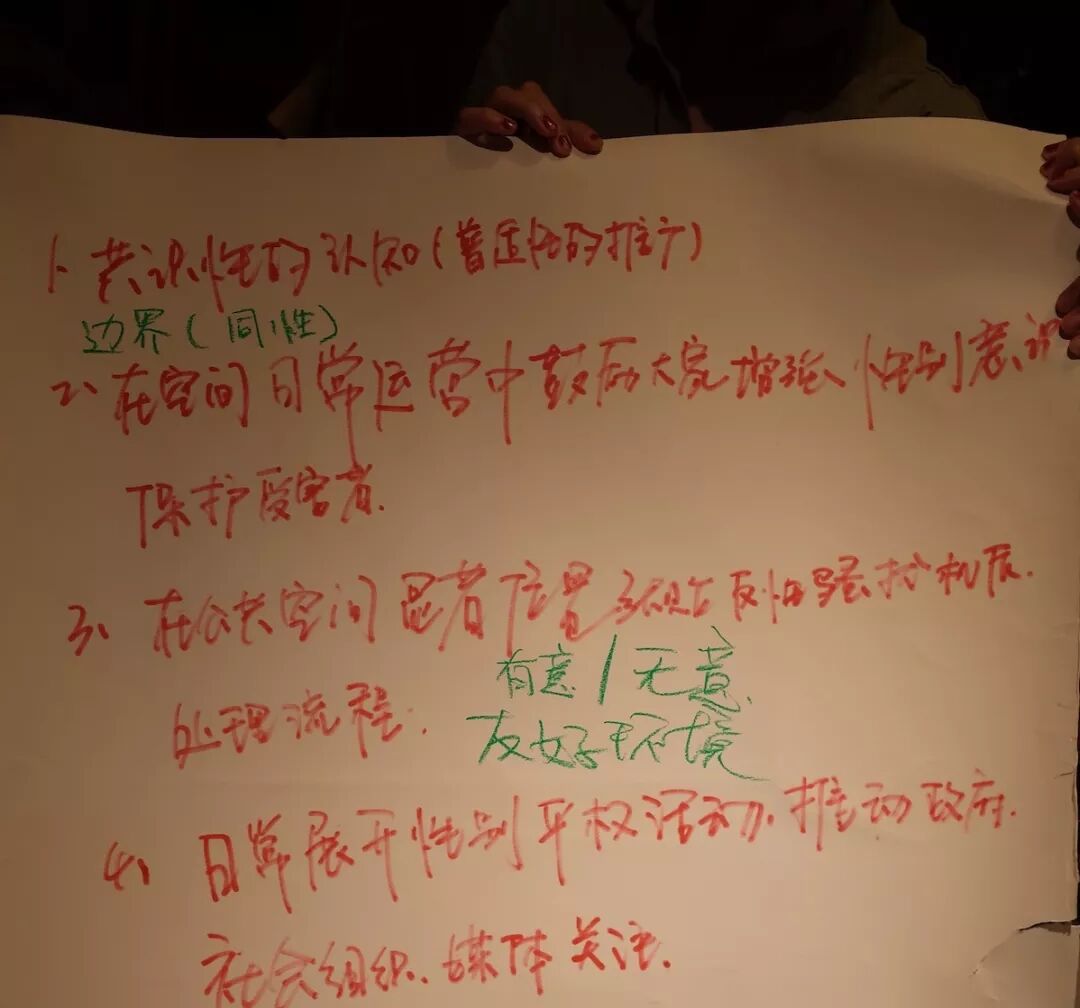 1、共识性的认知(普适性的推广)
边界(同性)
2、在空间日常运营中鼓励大家增强性别意识
保护受害者.
3、在公共空间显著位置张贴反性骚扰机制.
处理流程.
有意/无意.
友好环境
4、日常展开性别平权活动、推动政府.
社会组织、媒体关注.